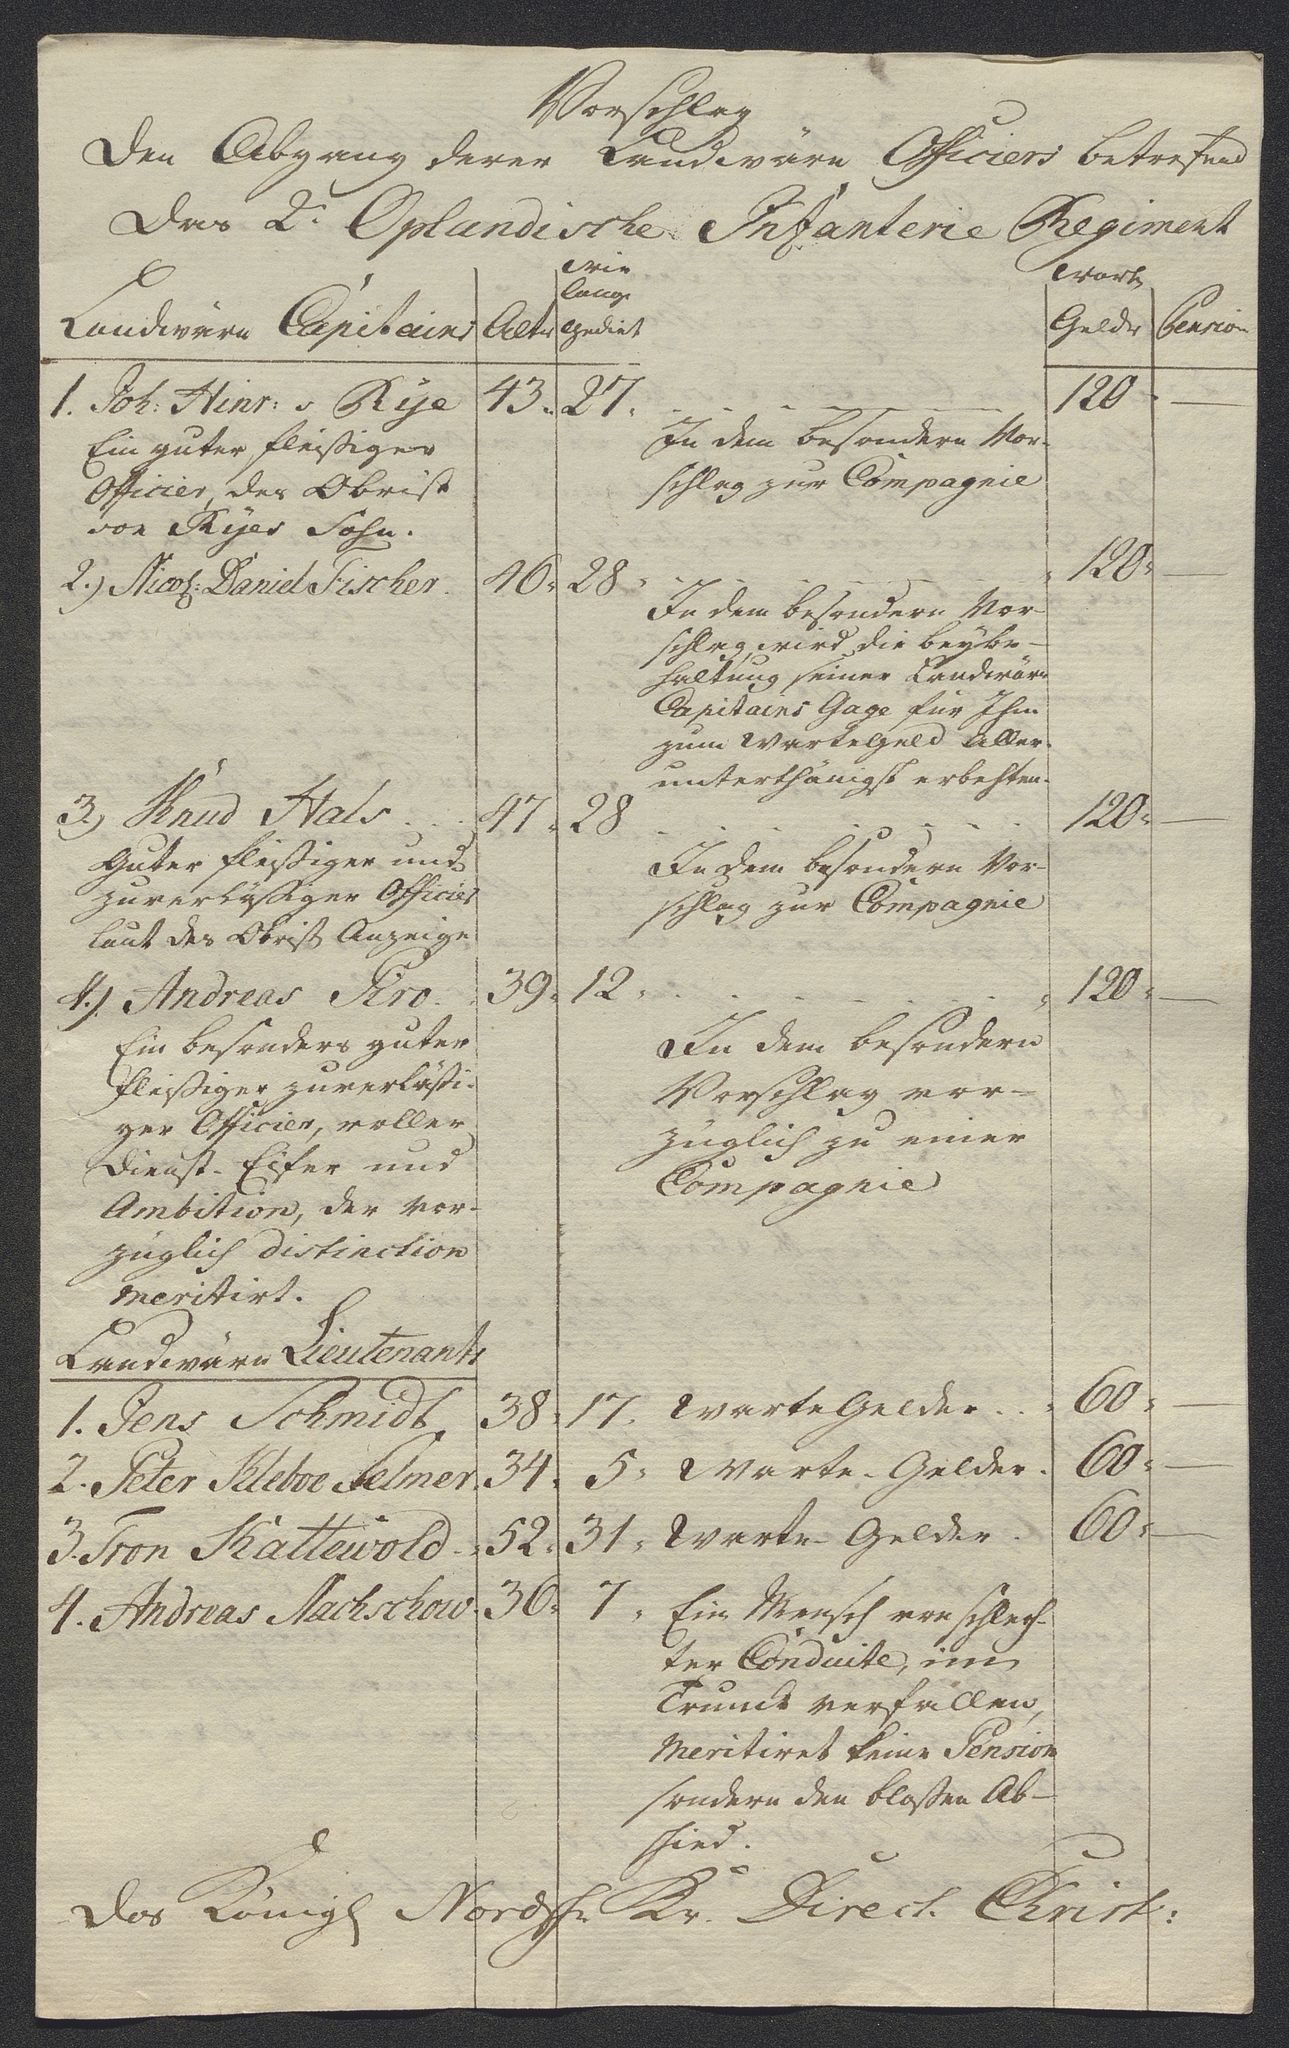 Vorschlag
Den Abgang derer Landwärn Officiers betrefend
Das 2.e Oplandische Infanterie Regiment
Landwärn Capitains Alter wie lange gedient warte Gelder Pension
1. Joh: Hinr: v Rye 43. 27. 120 —
Ein guter fleißiger
Officier, des Obrist
von Ryes Sohn.
In dem besondern Vor-
schlag zur Compagnie
2.) Nicol: Daniel Fischer. 46. 28. 120. —
In dem besondern Vor-
schlag wird die beybe-
haltung seiner Landwärn
Capitains Gage für Ihm
zum Wartegeld aller-
unterthänigst erbehten.
3.) Knud Hals 47. 28 120. —
Guter fleißiger und
zuverläßiger Officier
laut des Obrist Anzeige
In dem besondern Vor-
schlag zur Compagnie
4.) Andreas Firo. 39. 12. 120. —
Ein besonders guter
fleißiger zuverläßi-
ger Officier, voller
Dienst-Eifer und
Ambition, der vor-
züglich distinction
meritirt.
In dem besondern
Vorschlag vor-
züglich zu einer
Compagnie
Landwärn Lieutenants
1. Jens Schmidt 38. 17. Warte Gelder. 60. —
2. Peter Kleboe Selmer. 34. 5. Warte-Gelder. 60. —
3. Tron Kattewold. 52. 31. Warte-Gelder. 60. —
4. Andreas Nachschow. 36. 7. Ein Mensch von schlech-
ter Conduite, im
Trunck verfallen,
Meritiret keine Pension
sondern den bloßen Ab-
schied.
Das Königl Nordsche Kr. Direct. Christ: